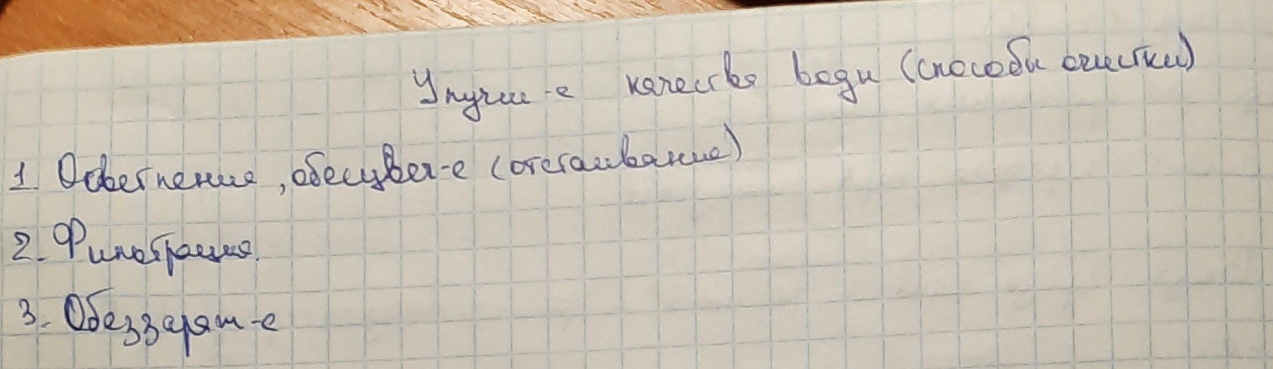 Улучш-е качества воды (способы очистки)
1. Осветление, обесцвеч-е (отстаивание)
2. Фильтрация.
3. Обеззараж-е